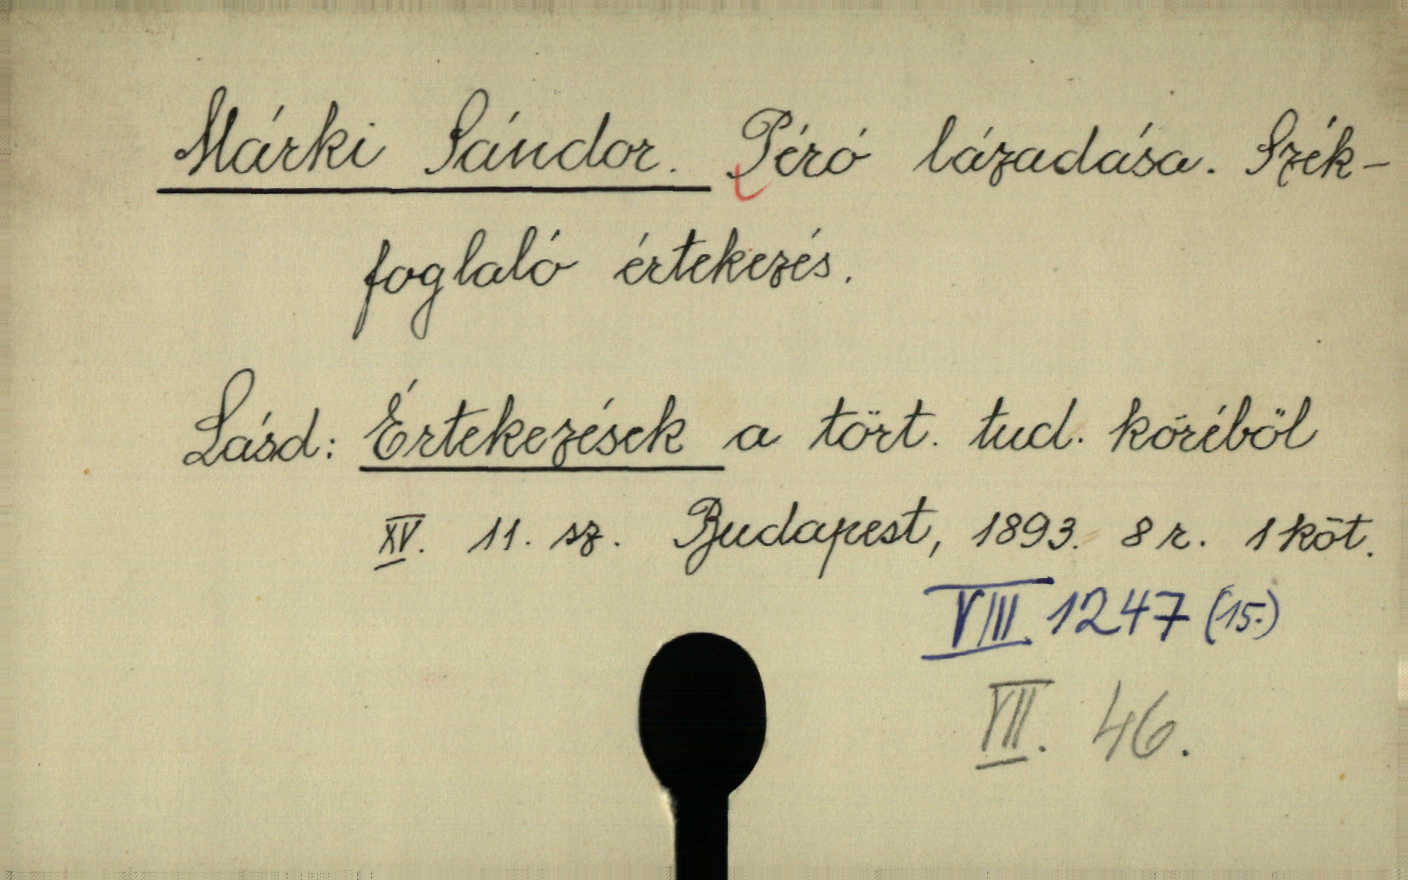 Márki Sándor. Péró lázadása. Szék-
foglaló értekezés.
Lásd: Értekezések a tört. tud. köréből
XV. 11. sz. Budapest, 1893. 8 r. 1 köt.
VIII 1247 (15.)
VII. 46.